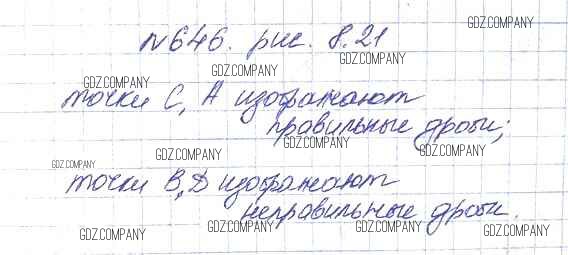 №646. рис. 8.21
точки С, А изображают
правильные дроби;
точки В, D изображают
неправильные дроби.
GDZ.COMPANY
GDZ.COMPANY
GDZ.COMPANY
GDZ.COMPANY
GDZ.COMPANY
GDZ.COMPANY
GDZ.COMPANY
GDZ.COMPANY
GDZ.COMPANY
GDZ.COMPANY
GDZ.COMPANY
GDZ.COMPANY
GDZ.COMPANY
GDZ.COMPANY